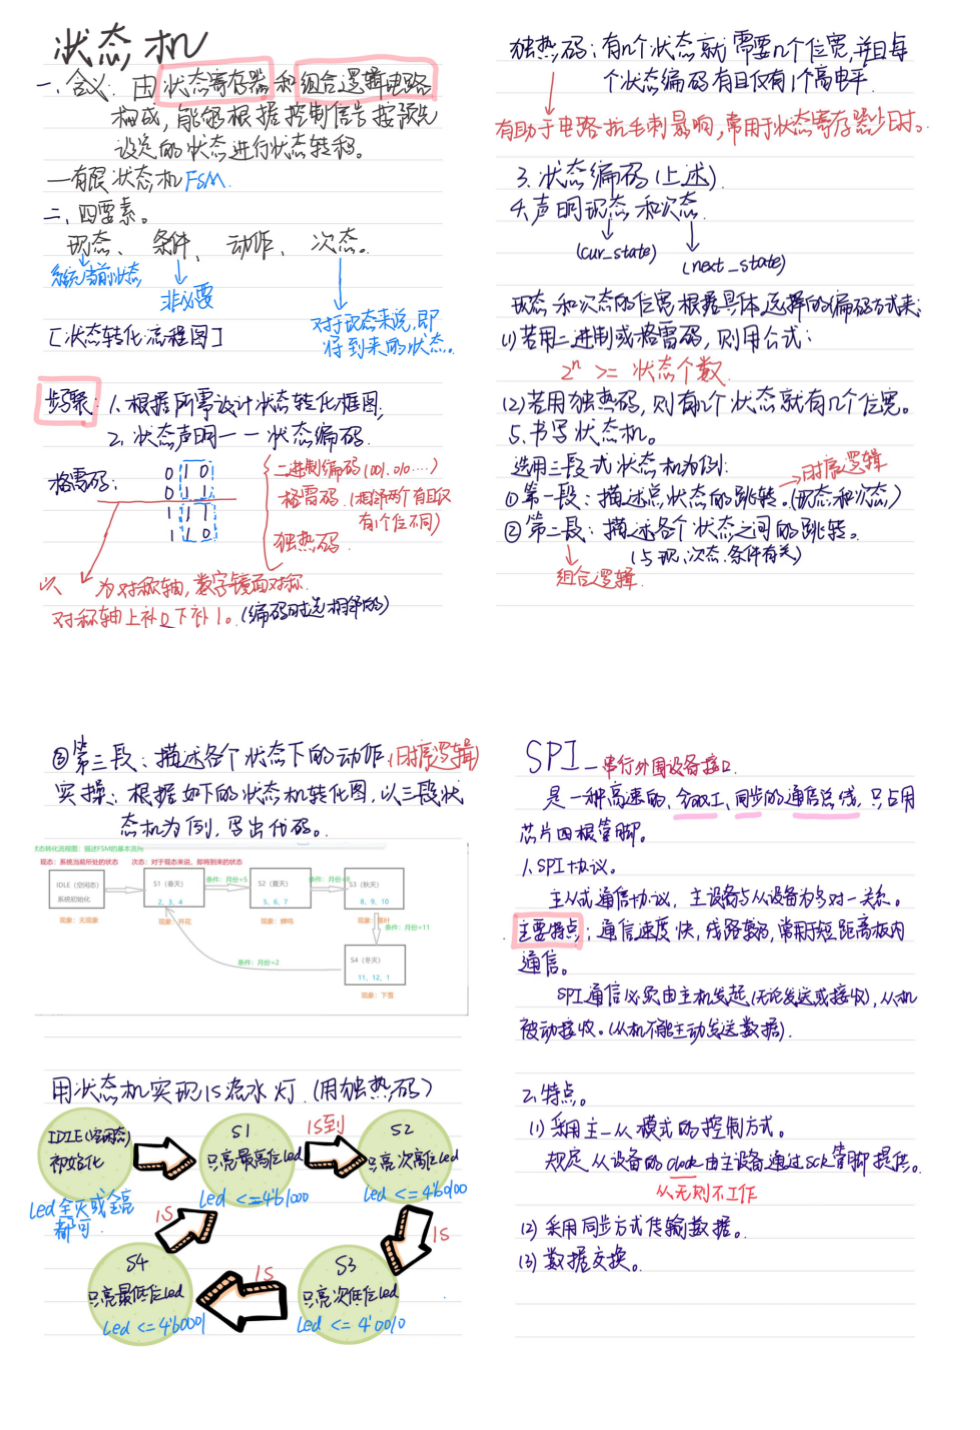 状态机
一、含义：由状态寄存器和组合逻辑电路
构成，能够根据控制信号按预先
设定的状态进行状态转移。
—有限状态机FSM.
二、四要素。
现态、条件、动作、次态。
系统当前状态
非必要
对于现态来说，即
将到来的状态。
[状态转化流程图]
步骤：1、根据所需设计状态转化框图，
2、状态声明——状态编码.
格雷码：
0 1 0
0 1 1
1 1 1
1 1 0
二进制编码(001.010····)
格雷码.(相邻两个有且仅
有1个位不同)
独热码.
以 为对称轴，数字镜面对称.
对称轴上补0下补1。(编码时选相邻的)
独热码：有n个状态就需要n个位宽，并且每
个状态编码有且仅有1个高电平.
有助于电路抗毛刺影响，常用于状态寄存器少时。
3.状态编码(上述).
4.声明现态和次态.
(cur_state)
(next_state)
现态和次态的位宽根据具体选择的编码方式来：
(1)若用二进制或格雷码，则用公式：
2ⁿ >= 状态个数.
(2)若用独热码，则有n个状态就有n个位宽。
5.书写状态机。
选用三段式状态机为例：
时序逻辑
①第一段：描述总状态的跳转。(现态和次态)
②第二段：描述各个状态之间的跳转。
(与现、次态.条件有关)
组合逻辑.
③第三段：描述各个状态下的动作(时序逻辑)
实操：根据如下的状态机转化图，以三段状
态机为例，写出代码。
状态转化流程图：描述FSM的基本流向
现态：系统当前所处的状态 次态：对于现态来说，即将到来的状态
IDLE（空闲态）
系统初始化
现象：无现象
S1（春天）
2、3、4
现象：开花
条件：月份=5
S2（夏天）
5、6、7
现象：蝉鸣
条件：月份=8
S3（秋天）
8、9、10
条件：月份=11
S4（冬天）
11、12、1
现象：下雪
条件：月份=2
用状态机实现1s流水灯.(用独热码)
IDLE(空闲态)
初始化
Led全灭或全亮
都可.
S1
只亮最高位led
Led <=4'b1000
1s到
S2
只亮次高位Led
Led <=4'b0100
1s
S3
只亮次低位led
Led <= 4'0010
1s
S4
只亮最低位led
Led <= 4'b0001
1s
SPI—串行外围设备接口.
是一种高速的、全双工、同步的通信总线，只占用
芯片四根管脚。
1.SPI协议。
主从式通信协议，主设备与从设备为多对一关系。
主要特点：通信速度快，线路较少，常用于短距离板内
通信。
SPI通信必须由主机发起(无论发送或接收)，从机
被动接收。(从机不能主动发送数据).
2.特点。
(1)采用主—从模式的控制方式。
规定从设备的clock由主设备通过SCK管脚提供。
从无则不工作
(2)采用同步方式传输数据。
(3)数据交换。